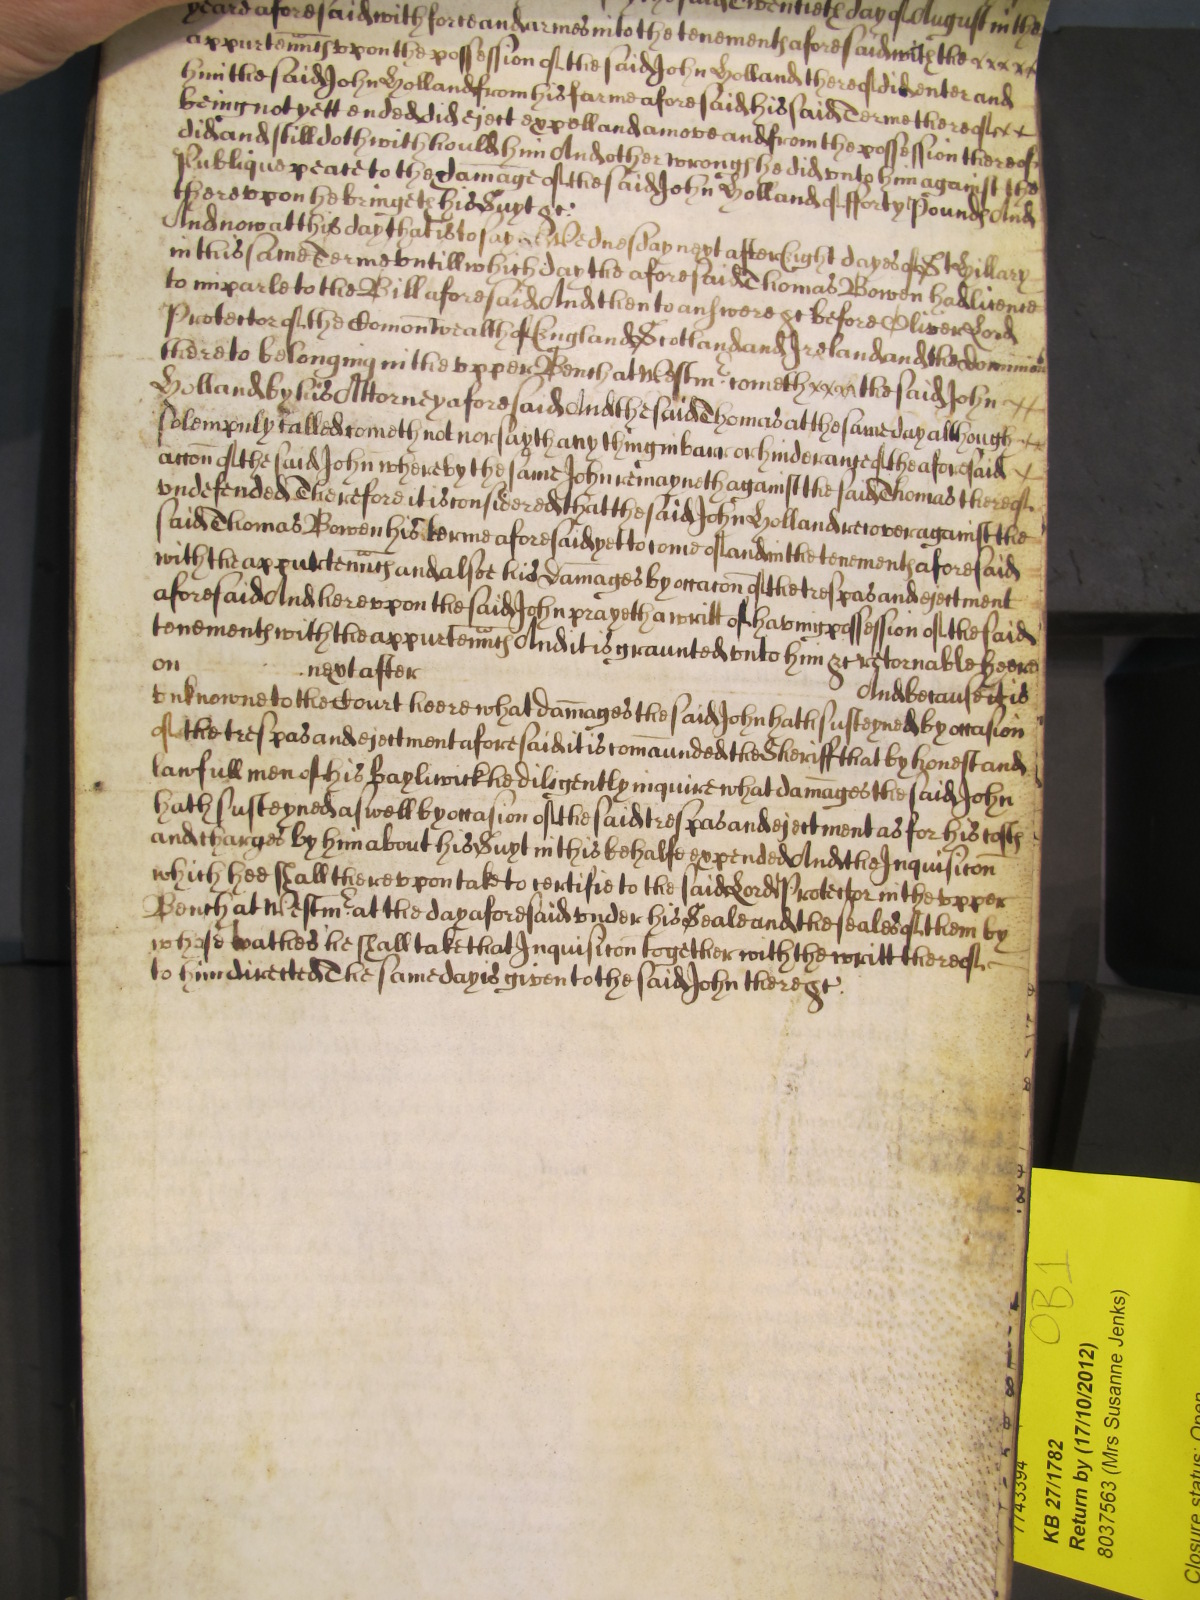 the said Twentieth day of August in the
yeare aforesaid with force and armes into the tenements aforesaid with the xxxx
appurtennts vpon the possession of the said John Holland thereof did enter and
him the said John Holland from his farme aforesaid his said Terme thereof xx
being not yett ended did eject expell and amove and from the possession thereof
did and still doth withhould him And other wrongs he did vnto him against the
Publique peace to the damage of the said John Holland of fforty Pounds And
therevpon he bringeth his Suyt &c.
And now at this day that is to say Wednesday next after Eight dayes of St Hillary
in this same Terme vntill which day the aforesaid Thomas Bowen had licence
to imparle to the Bill aforesaid And then to answere &c before Oliver Lord
Protector of the Comon Wealth of England Scotland and Ireland and the dominions
thereto belonging in the vpper Bench at Westmr cometh xxxx the said John
Holland by his Attorney aforesaid And the said Thomas at the same day although
solempnly called cometh not nor sayth any thing in barr or hinderance of the aforesaid x
accon of the said John whereby the same John remayneth against the said Thomas thereof
vndefended Therefore it is considered that the said John Holland recover against the
said Thomas Bowen his terme aforesaid yet to come of and in the tenements aforesaid
with the appurtennts and alsoe his Damages by occacon of the trespas and ejectment
aforesaid And herevpon the said John prayeth a writt of having possession of the said
tenements with the appurtennts And it is graunted vnto him &c retornable heere
on next after And because it is
vnknowne to the Court heere what damages the said John hath susteyned by occasion
of the trespas and ejectment aforesaid it is comaunded the Sheriff that by honest and
lawfull men of his Bayliwick he diligently inquire what damages the said John
hath susteyned aswell by occasion of the said trespas and ejectment as for his costs
and charges by him about his Suyt in this behalfe expended And the Inquisicon
which hee shall therevpon take to certifie to the said Lord Protector in the vpper
Bench at Westmr at the day aforesaid vnder his Seale and the seales of them by
whose oathes he shall take that Inquisicon together with the writt thereof
to him directed The same day is given to the said John there &c.
OB1
7743394
KB 27/1782
Return by (17/10/2012)
8037563 (Mrs Susanne Jenks)
Closure status: Open